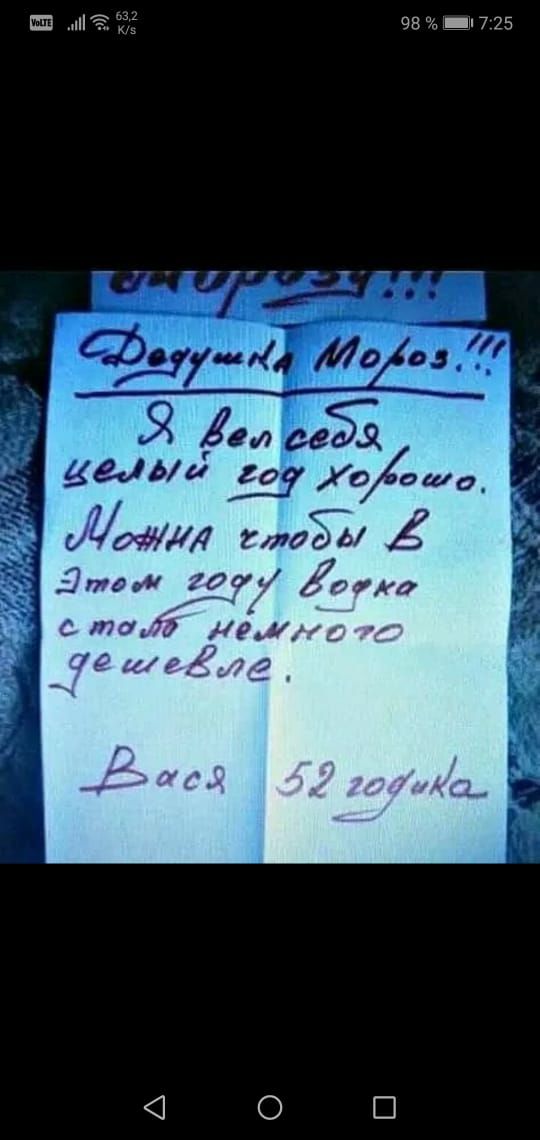 VoLTE 63,2 K/s 98 % 7:25
Морозу!!!
Дедушка Мороз!!!
Я вел себя
целый год хорошо.
Можна чтобы в
этом году водка
стала немного
дешевле.
Вася 52 годика